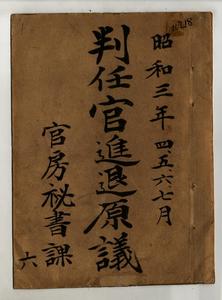 昭和三年 四、五、六、七月
判任官進退原議
官房祕書課
六